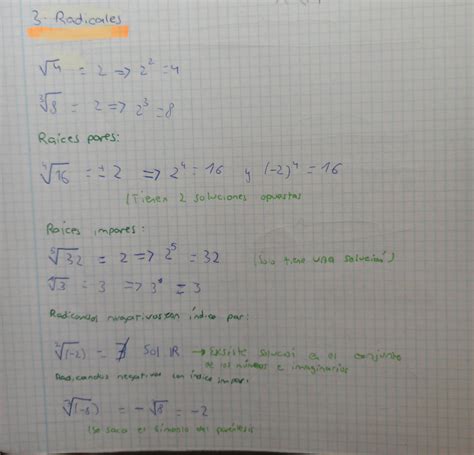 3- Radicales
√4 = 2 => 2² = 4
∛8 = 2 => 2³ = 8
Raíces pares:
∜16 = ± 2 => 2⁴ = 16 y (-2)⁴ = 16
(Tienen 2 soluciones opuestas
Raíces impares:
⁵√32 = 2 => 2⁵ = 32 (Solo tiene una solución)
= 3 => = 3
Radicandos negativos con índice par:
√(-2) = ∄ Sol. IR → Existe en el conjunto
de los números imaginarios
Radicandos negativos con índice impar:
∛(-8) = -√8 = -2
(Se saca el símbolo del paréntesis